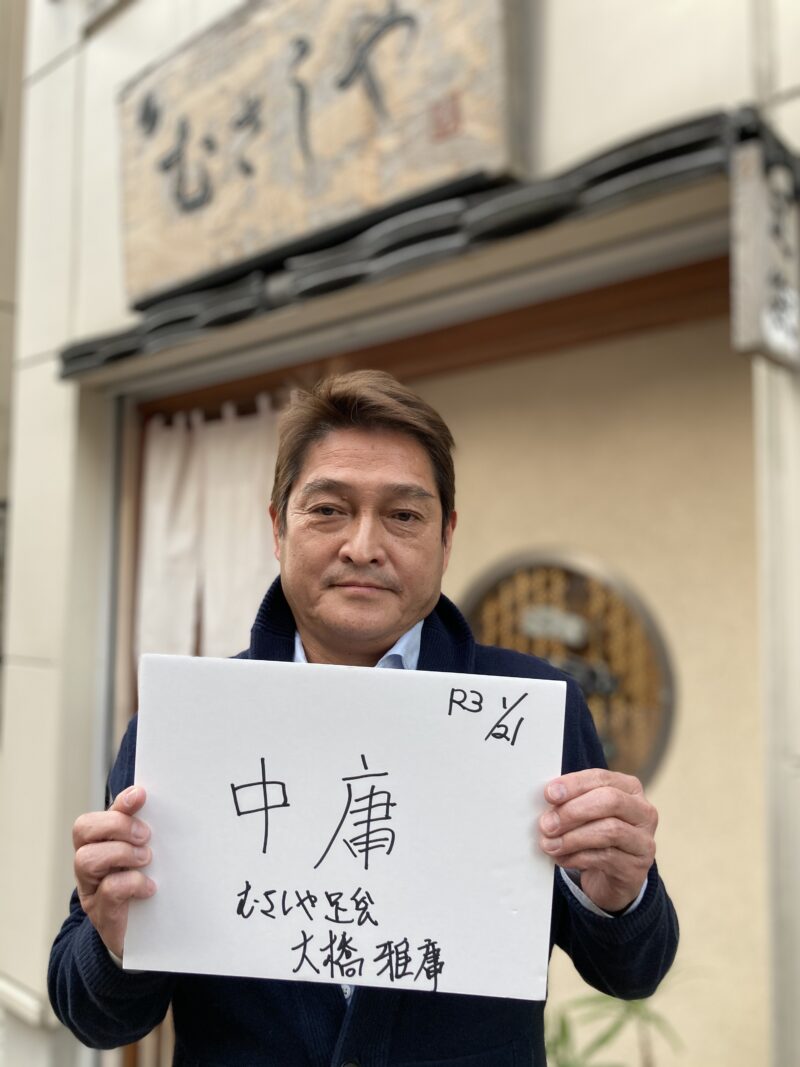 むさしや
R3 1/21
中庸
むさしや足袋
大橋 雅庸